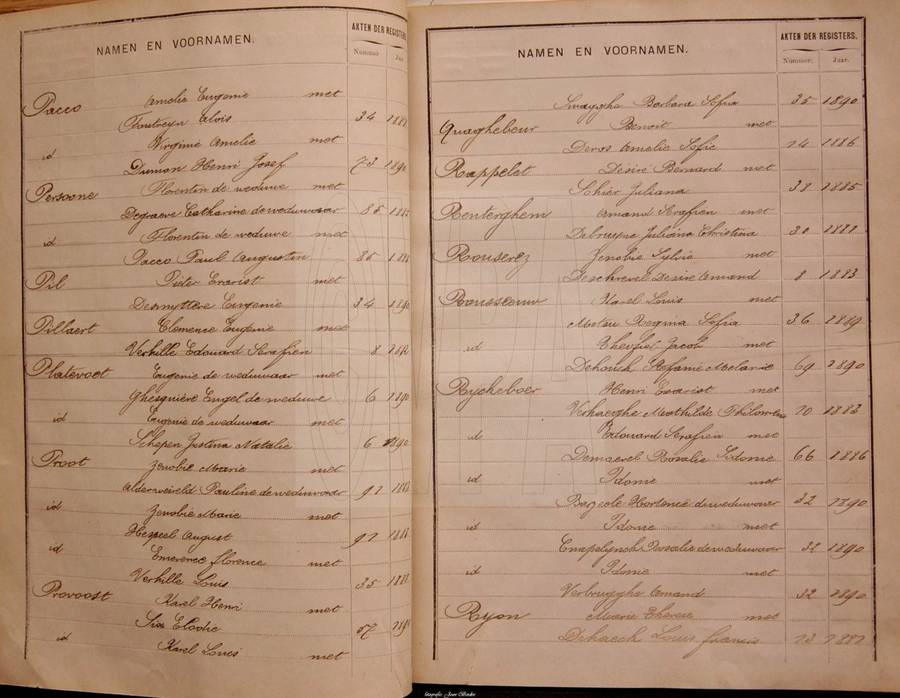 NAMEN EN VOORNAMEN.
AKTEN DER REGISTERS.
Nummer
Pacco Amelie Eugenie met
Alois 34
id Virginie Amelie met
Dumon Henri Josef 73 1890
Persoone Florentin de weduwe met
Degraeve Catharine de weduwaar 85
id Florentin de weduwe met
Pacco Paul Augustin 85
Pil Pieter Evarist met
Desnyttere Eugenie 34 1890
Pillaert Clemence Eugenie met
Verhille Edouard Serafien 8
Platevoet Eugenie de weduwaar met
Ghesquière Engel de weduwe 6 1890
id Eugenie de weduwaar met
Schepen Justina Natalie 6 1890
Proot Zenobie Marie met
Alderweireld Pauline de weduwaar 92
id Zenobie Marie met
August 92
id Emerence Florence met
Verhille Louis 35
Provoost Karel Henri met
Six Elodie 57
id Karel Louis met
NAMEN EN VOORNAMEN.
AKTEN DER REGISTERS.
Nummer. Jaar.
Barbara Sofia 35 1890
Quaghebeur Benoit met
Devos Amelie Sofie 14 1886
Rappelet Désiré Bernard met
Schier Juliana 38 1885
Renterghem Amand Serafien met
Debruyne Juliana Christina 30
Rouserez Zenobie Sylvie met
Deschrevel Desire Amand 8 1883
Rousseeuw Karel Louis met
Regina Sofia 36 1889
id Jacob met
Stefanie Melanie 69 1890
Ryckeboer Henri Evarist met
Verhaeghe Mathilde 10 1883
id Edouard Serafien met
Rosalie Sidonie 66 1886
id Idonie met
Hortence de weduwaar 32 1890
id Idonie met
Rosalie de weduwaar 32 1890
id Idonie met
Verbrugghe Amand 32 1890
Ryon Marie Therese met
Louis Francis